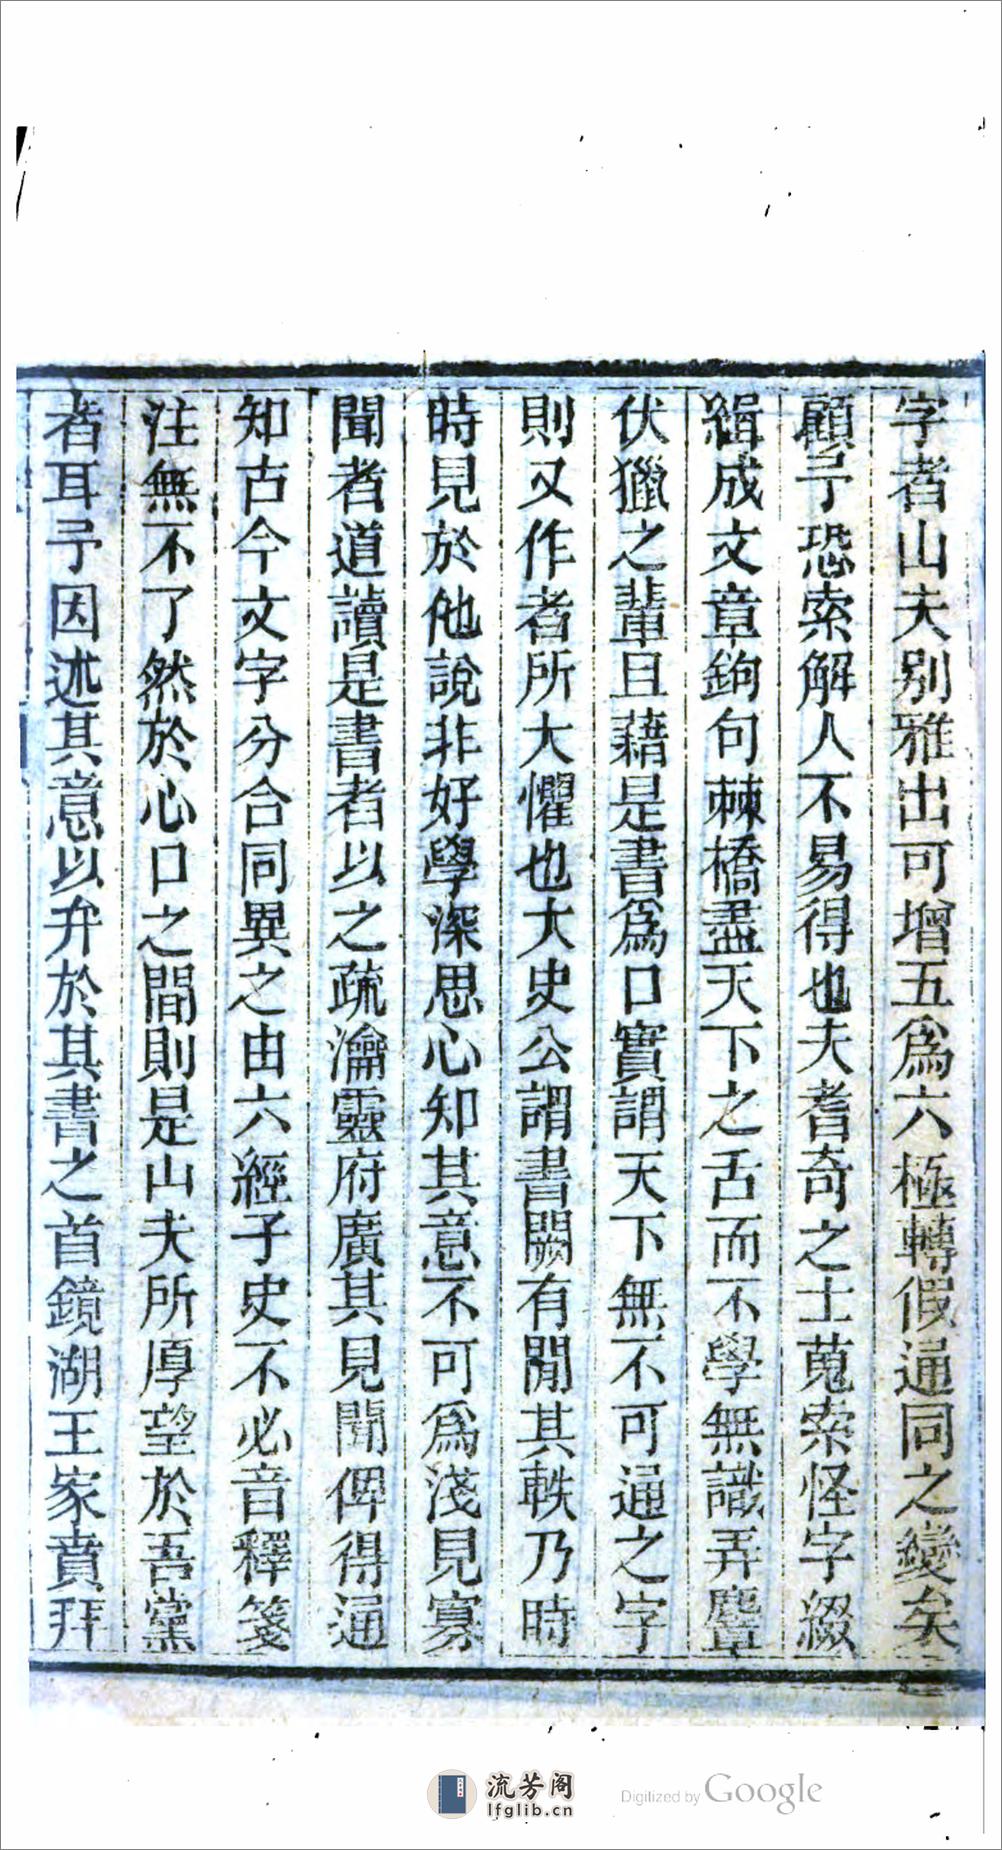 字者山夫别雅出可增五爲六極轉假通同之變矣
顧予恐索解人不易得也夫耆奇之士蒐索怪字綴
緝成文章鉤句棘橋盡天下之舌而不學無識弄麞
伏獵之輩且藉是書爲口實謂天下無不可通之字
則又作者所大懼也大史公謂書闕有閒其軼乃時
時見於他說非好學深思心知其意不可爲淺見寡
聞者道讀是書者以之疏瀹靈府廣其見聞俾得通
知古今文字分合同異之由六經子史不必音釋箋
注無不了然於心口之間則是山夫所厚望於吾黨
者耳予因述其意以弁於其書之首鏡湖王家賁拜
流芳阁
lfglib.cn
Digitized by Google